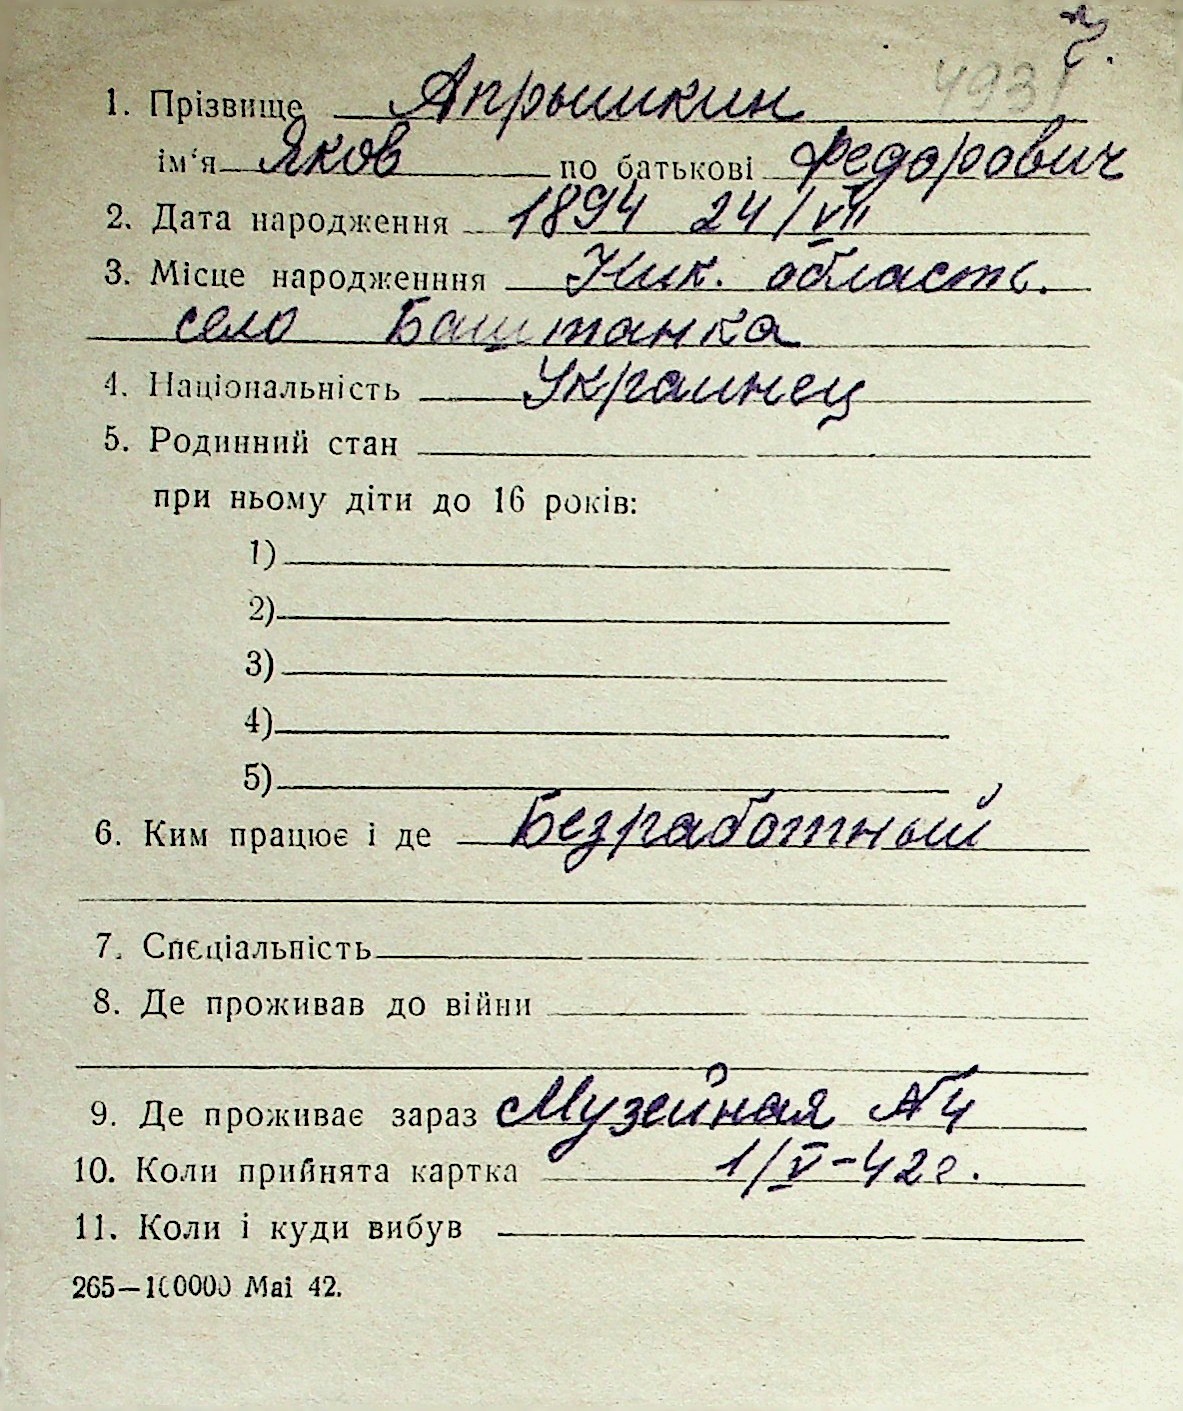 4931
1. Прізвище Апрышкин
ім'я Яков по батькові Федорович
2. Дата народження 1894 24/VII
3. Місце народженння Ник. область.
село Баштанка
4. Національність Украинец
5. Родинний стан
при ньому діти до 16 років:
1)
2)
3)
4)
5)
6. Ким працює і де Безработный
7. Спєціальність
8. Де проживав до війни
9. Де проживає зараз Музейная №4
10. Коли прийнята картка 1/V-42г.
11. Коли і куди вибув
265—100000 Mai 42.